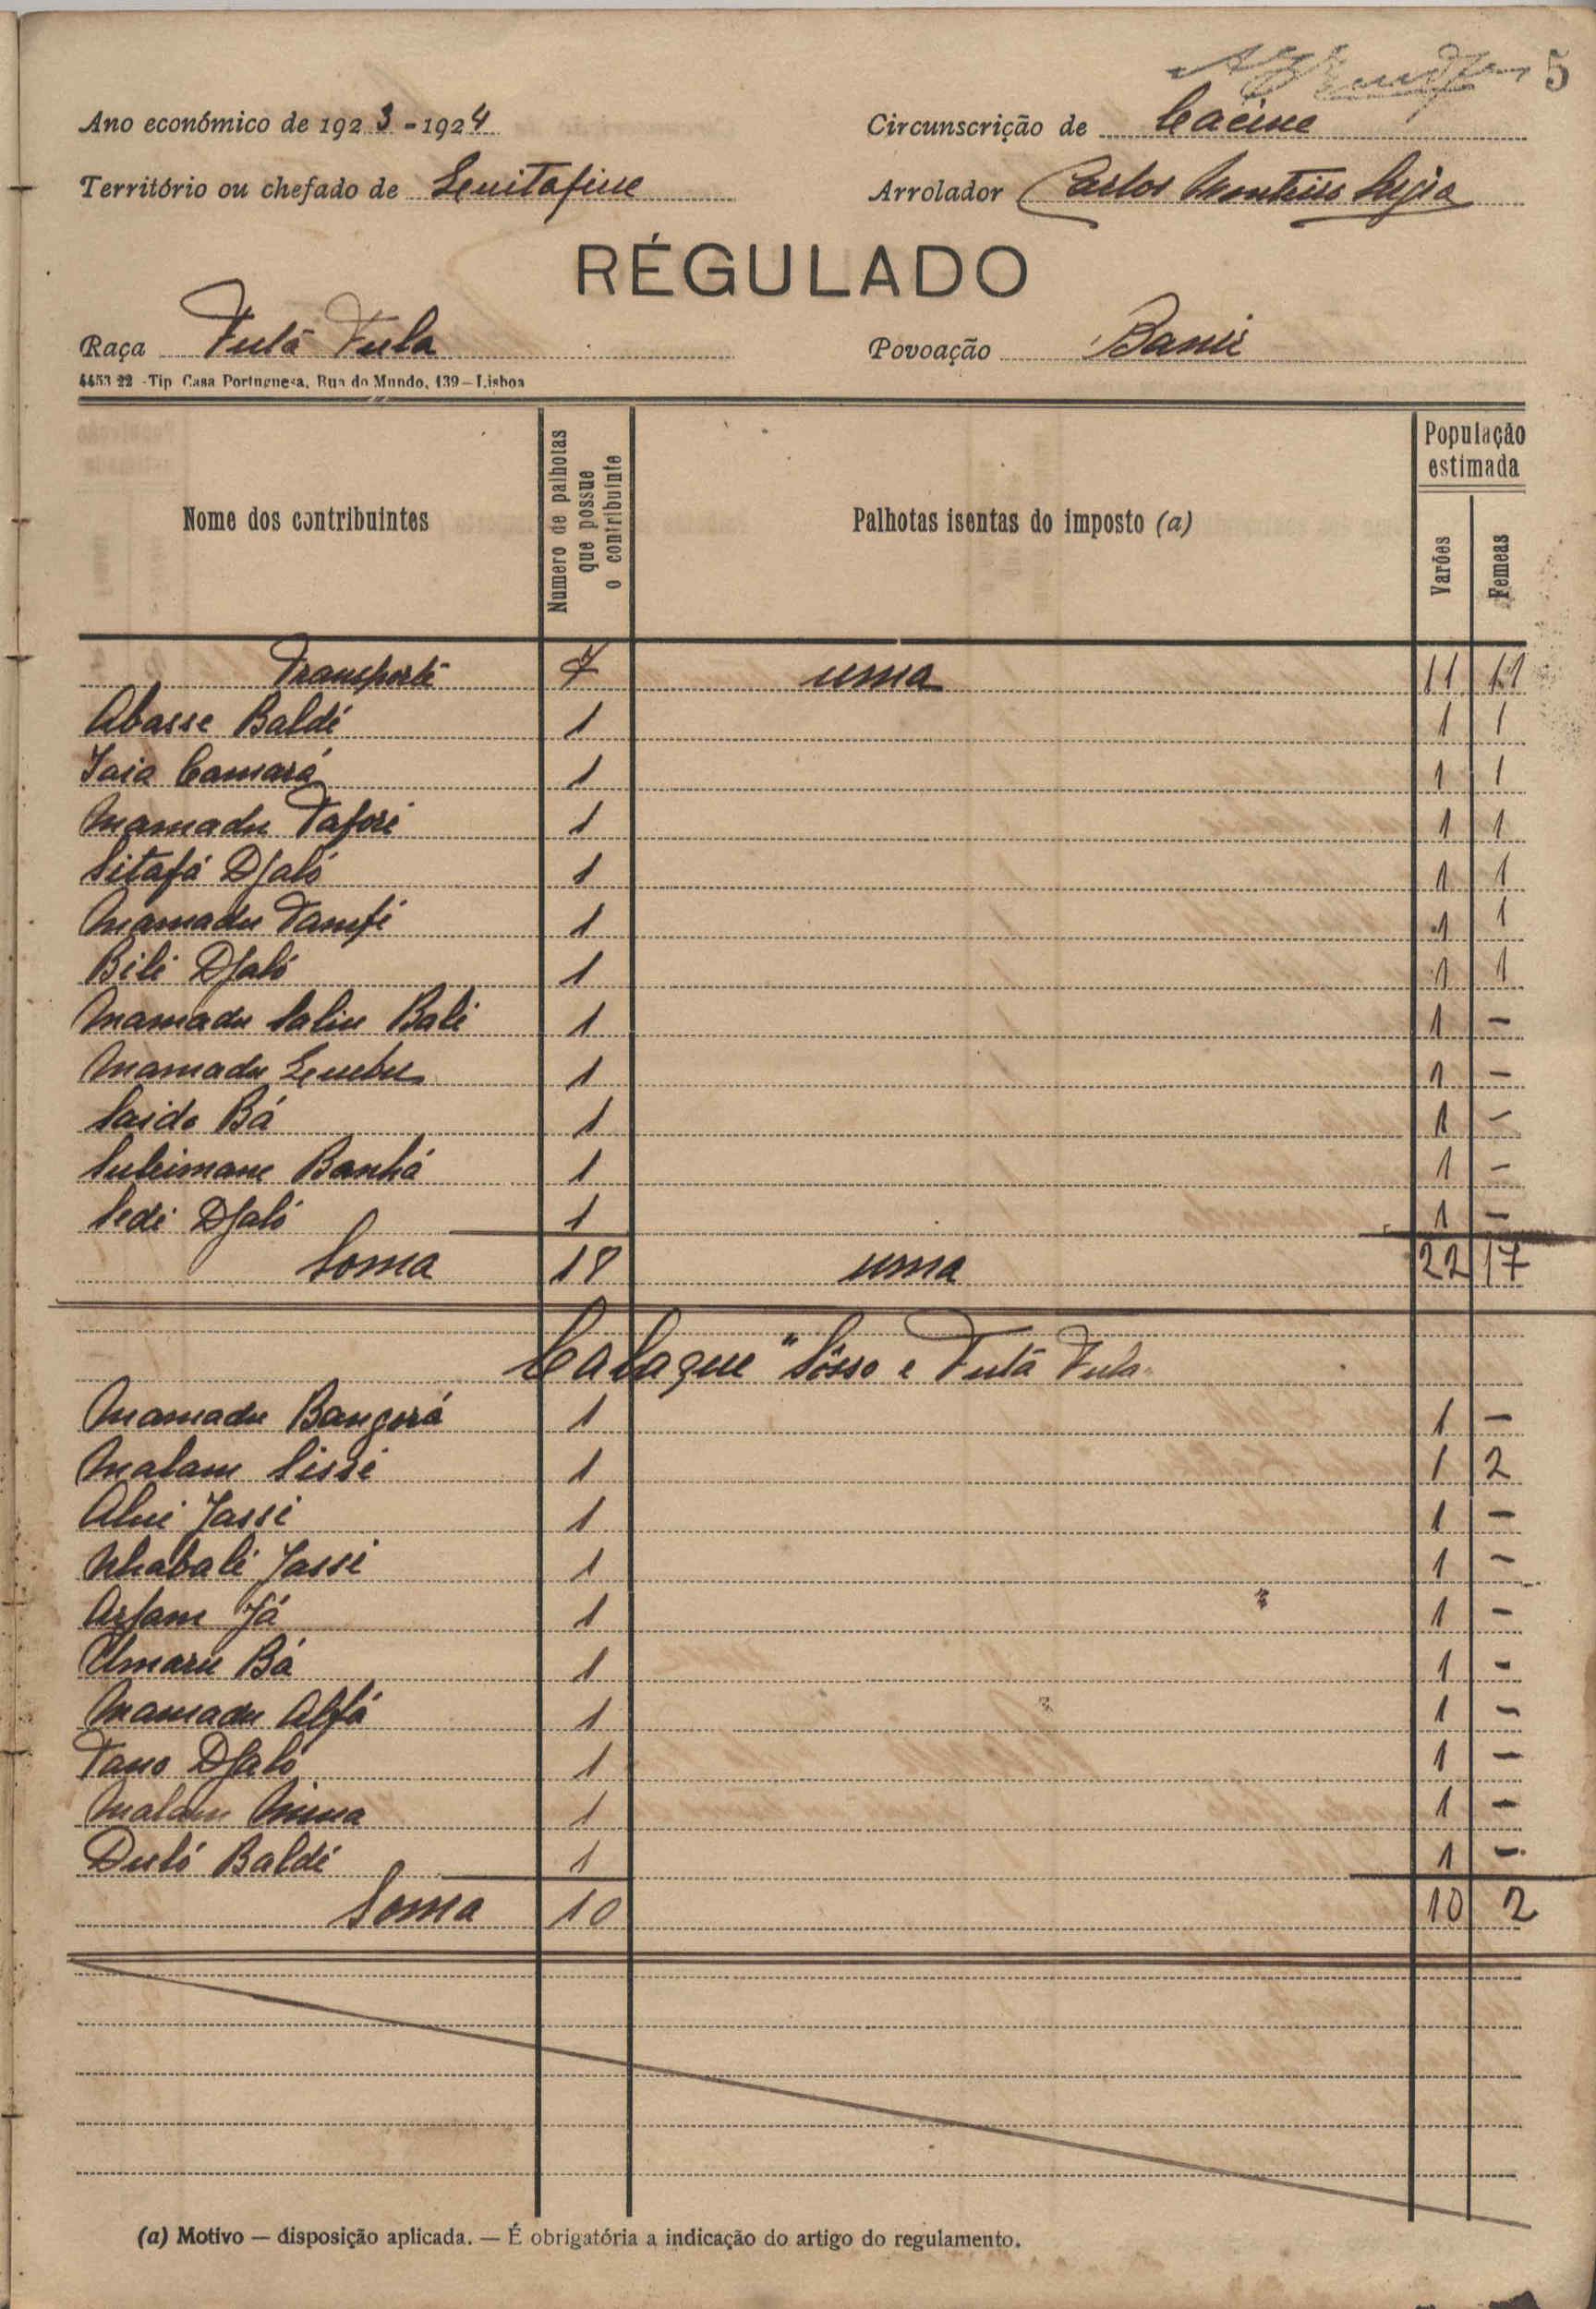 5
Ano económico de 1923-1924 Circunscrição de Cacine
Território ou chefado de Arrolador Carlos Monteiro
RÉGULADO
Raça Futá Fula Povoação
4453 22 - Tip Casa Portuguesa, Rua do Mundo, 139 – Lisboa
Nome dos contribuintes Numero de palhotas que possue o contribuinte Palhotas isentas do imposto (a) População estimada Varões Femeas
Transporte 7 uma 11 11
Abasse Baldé 1 1 1
Iaia Camará 1 1 1
Mamadu Tafori 1 1 1
Sitafá Djaló 1 1 1
Mamadu 1 1 1
Bili Djaló 1 1 1
Mamadu Saliu Bali 1 1 –
Mamadu 1 1 –
Saido Bá 1 1 –
Suleimane Banhá 1 1 –
Sedi Djaló 1 1 –
Soma 18 uma 22 17
Calaque "Sôsso e Futá Fula
Mamadu Bangorá 1 1 –
Malam Sissi 1 1 2
Alui Jassi 1 1 –
Nhabali Jassi 1 1 –
Arfam Já 1 1 –
Umaru Bá 1 1 –
Mamadu Alfá 1 1 –
Tano Djaló 1 1 –
Malam Mina 1 1 –
Duló Baldé 1 1 –
Soma 10 10 2
(a) Motivo — disposição aplicada. — É obrigatória a indicação do artigo do regulamento.